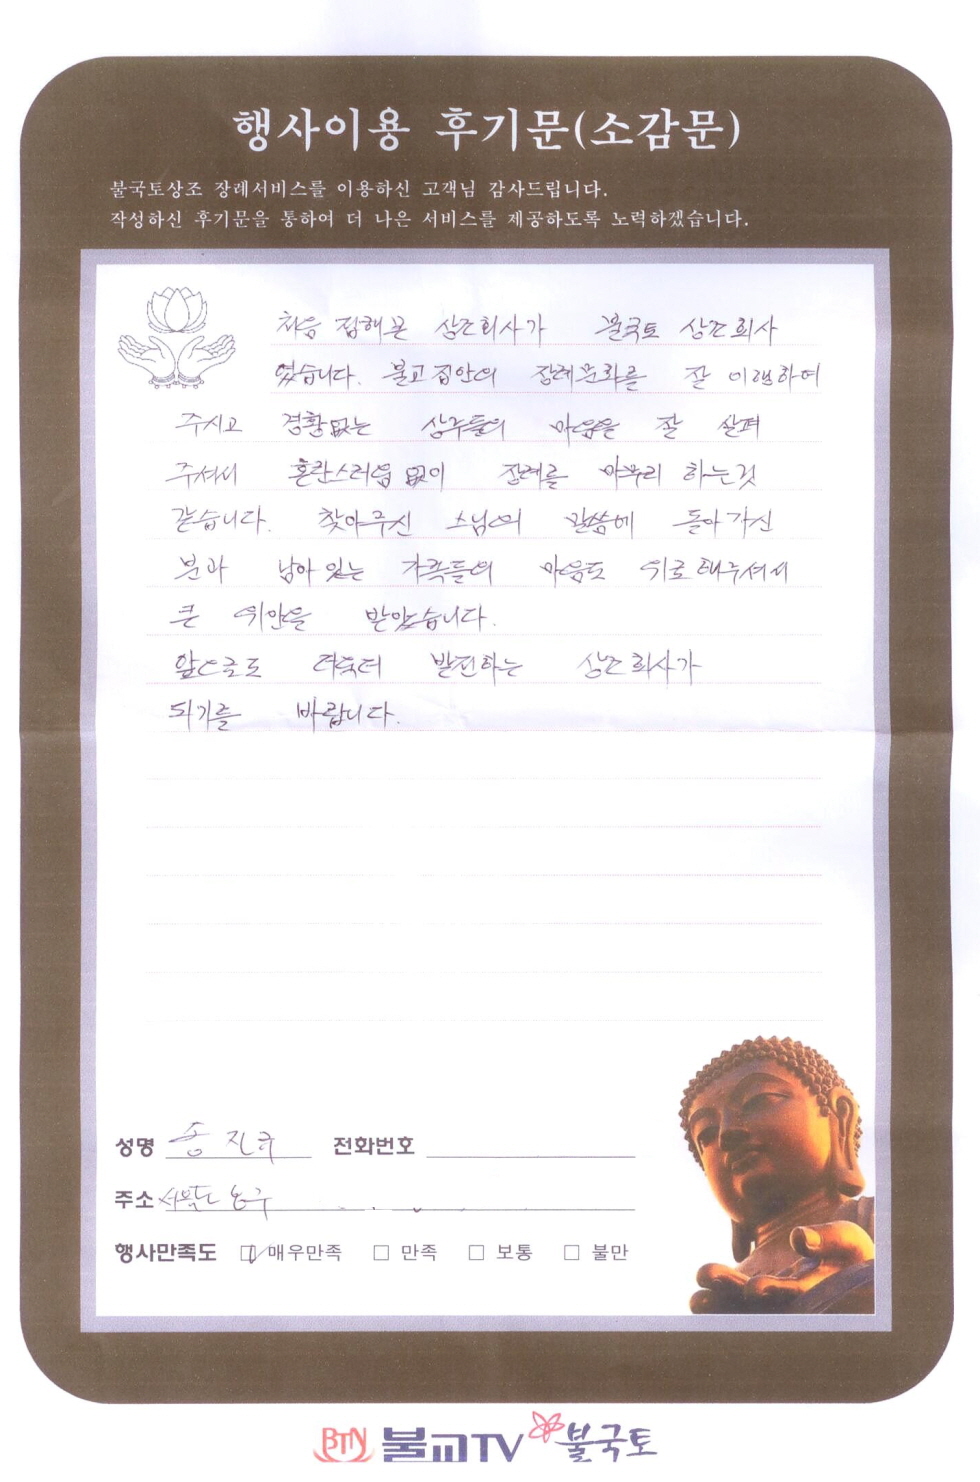 행사이용 후기문(소감문)
불국토상조 장례서비스를 이용하신 고객님 감사드립니다.
작성하신 후기문을 통하여 더 나은 서비스를 제공하도록 노력하겠습니다.
처음 접해본 상조회사가 불국토 상조회사
였습니다. 불교집안의 장례문화를 잘 이행하여
주시고 경황없는 상주들의 마음을 잘 살펴
주셔서 혼란스러움없이 장례를 마무리 하는것
같습니다. 찾아주신 스님의 말씀에 돌아가신
분과 남아있는 가족들의 마음도 위로해주셔서
큰 위안을 받았습니다.
앞으로도 더욱더 발전하는 상조회사가
되기를 바랍니다.
성명 송진규 전화번호
주소
행사만족도 매우만족 만족 보통 불만
BTN 불교TV 불국토